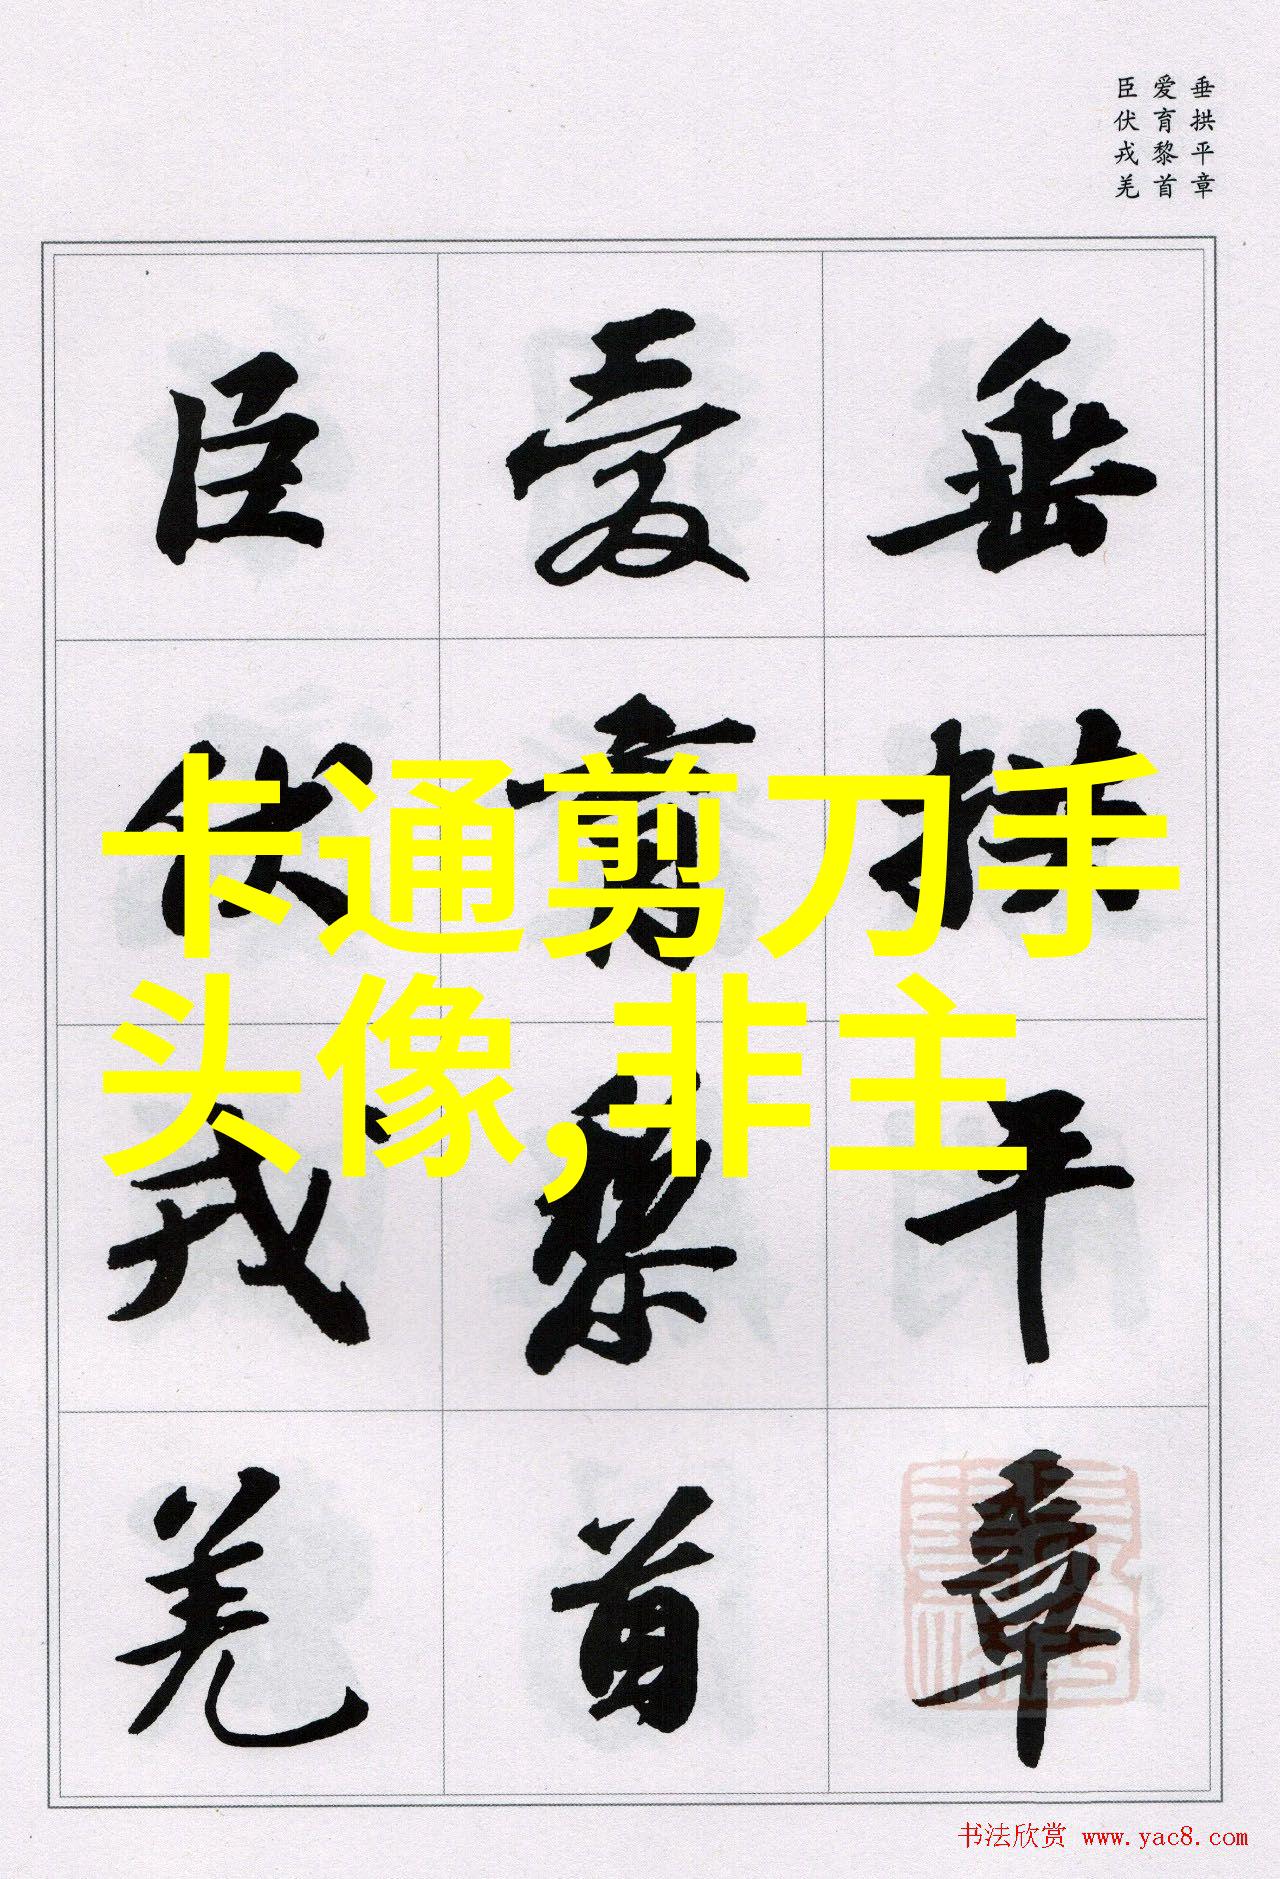 垂拱平章
爱育黎首
臣伏戎羌
垂拱平章
爱育黎首
臣伏戎羌
卡通剪刀手
头像,非主
书法欣赏 www.yac8.com